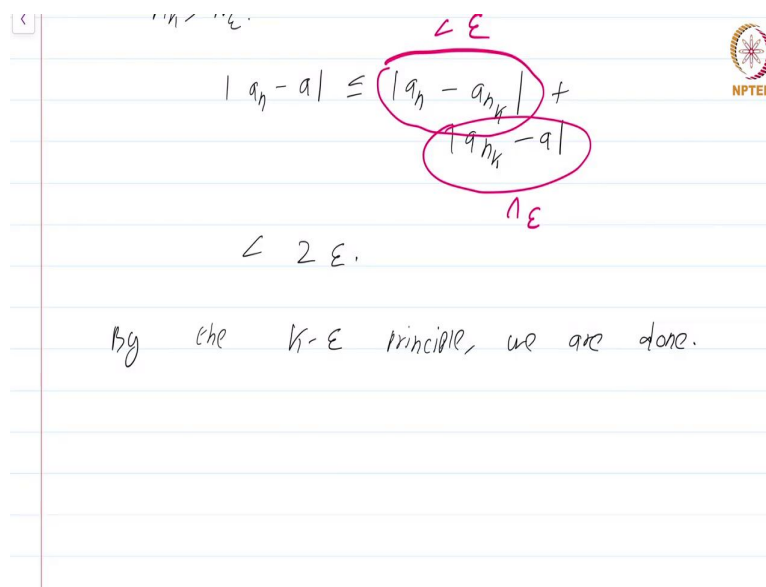 < ε
| aₙ - a | ≤ | aₙ - aₙₖ | +
| aₙₖ - a |
∧ ε
< 2 ε.
By the K-ε principle, we are done.
NPTEL